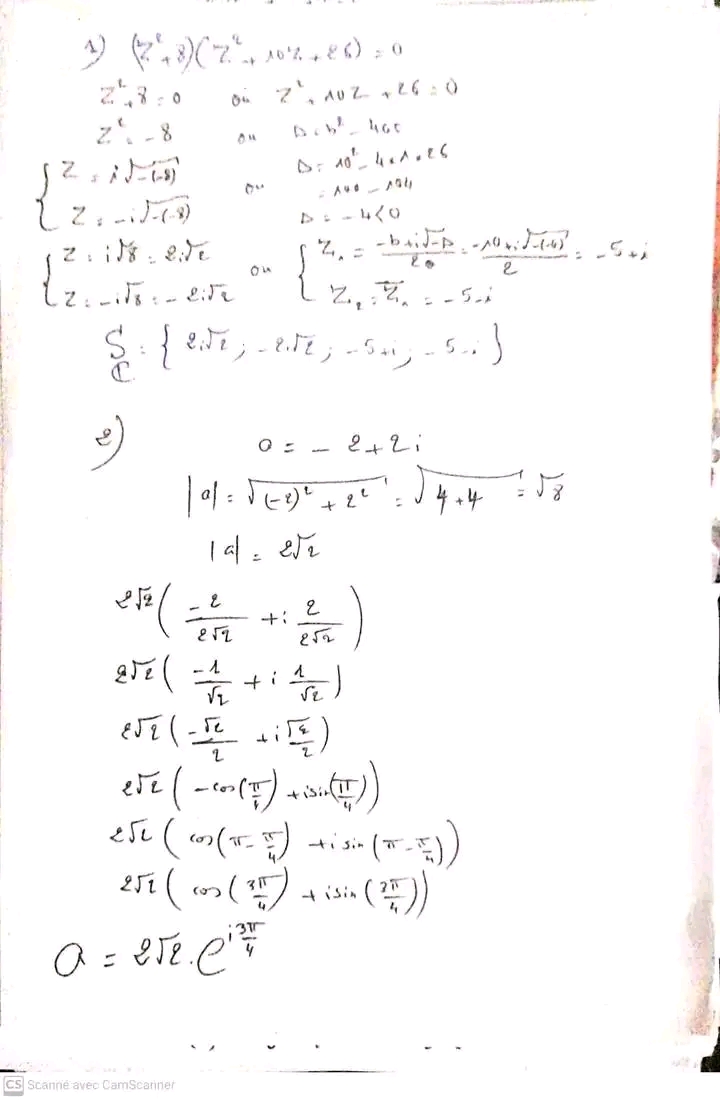 1) (Z²+8)(Z²+10Z+26)=0
Z²+8=0 ou Z²+10Z+26=0
Z²=-8 ou Δ=b²-4ac
{ Z=i√-(-8) ou Δ=10²-4×1×26
=100-104
{ Z=-i√-(-8) Δ=-4<0
{ Z=i√8=2i√2 ou { Z₁=(-b+i√-Δ)/2a=(-10+i√-(-4))/2=-5+i
{ Z=-i√8=-2i√2 { Z₂=Z̄₁=-5-i
S_ℂ={2i√2; -2i√2; -5+i; -5-i}
2) a=-2+2i
|a|=√((-2)²+2²)=√(4+4)=√8
|a|=2√2
2√2(-2/(2√2)+i 2/(2√2))
2√2(-1/√2+i 1/√2)
2√2(-√2/2+i√2/2)
2√2(-cos(π/4)+isin(π/4))
2√2(cos(π-π/4)+i sin(π-π/4))
2√2(cos(3π/4)+isin(3π/4))
a=2√2.e^(i3π/4)
CS Scanné avec CamScanner